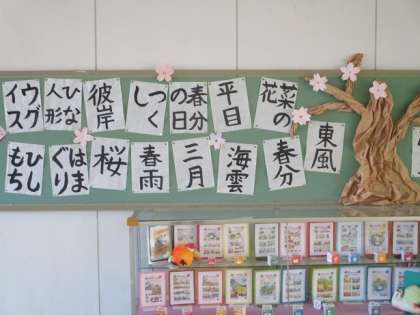 菜の花
平目
春分の日
つくし
彼岸
ひな人形
ウグイス
東風
春分
海雲
三月
春雨
桜
はまぐり
ひしもち